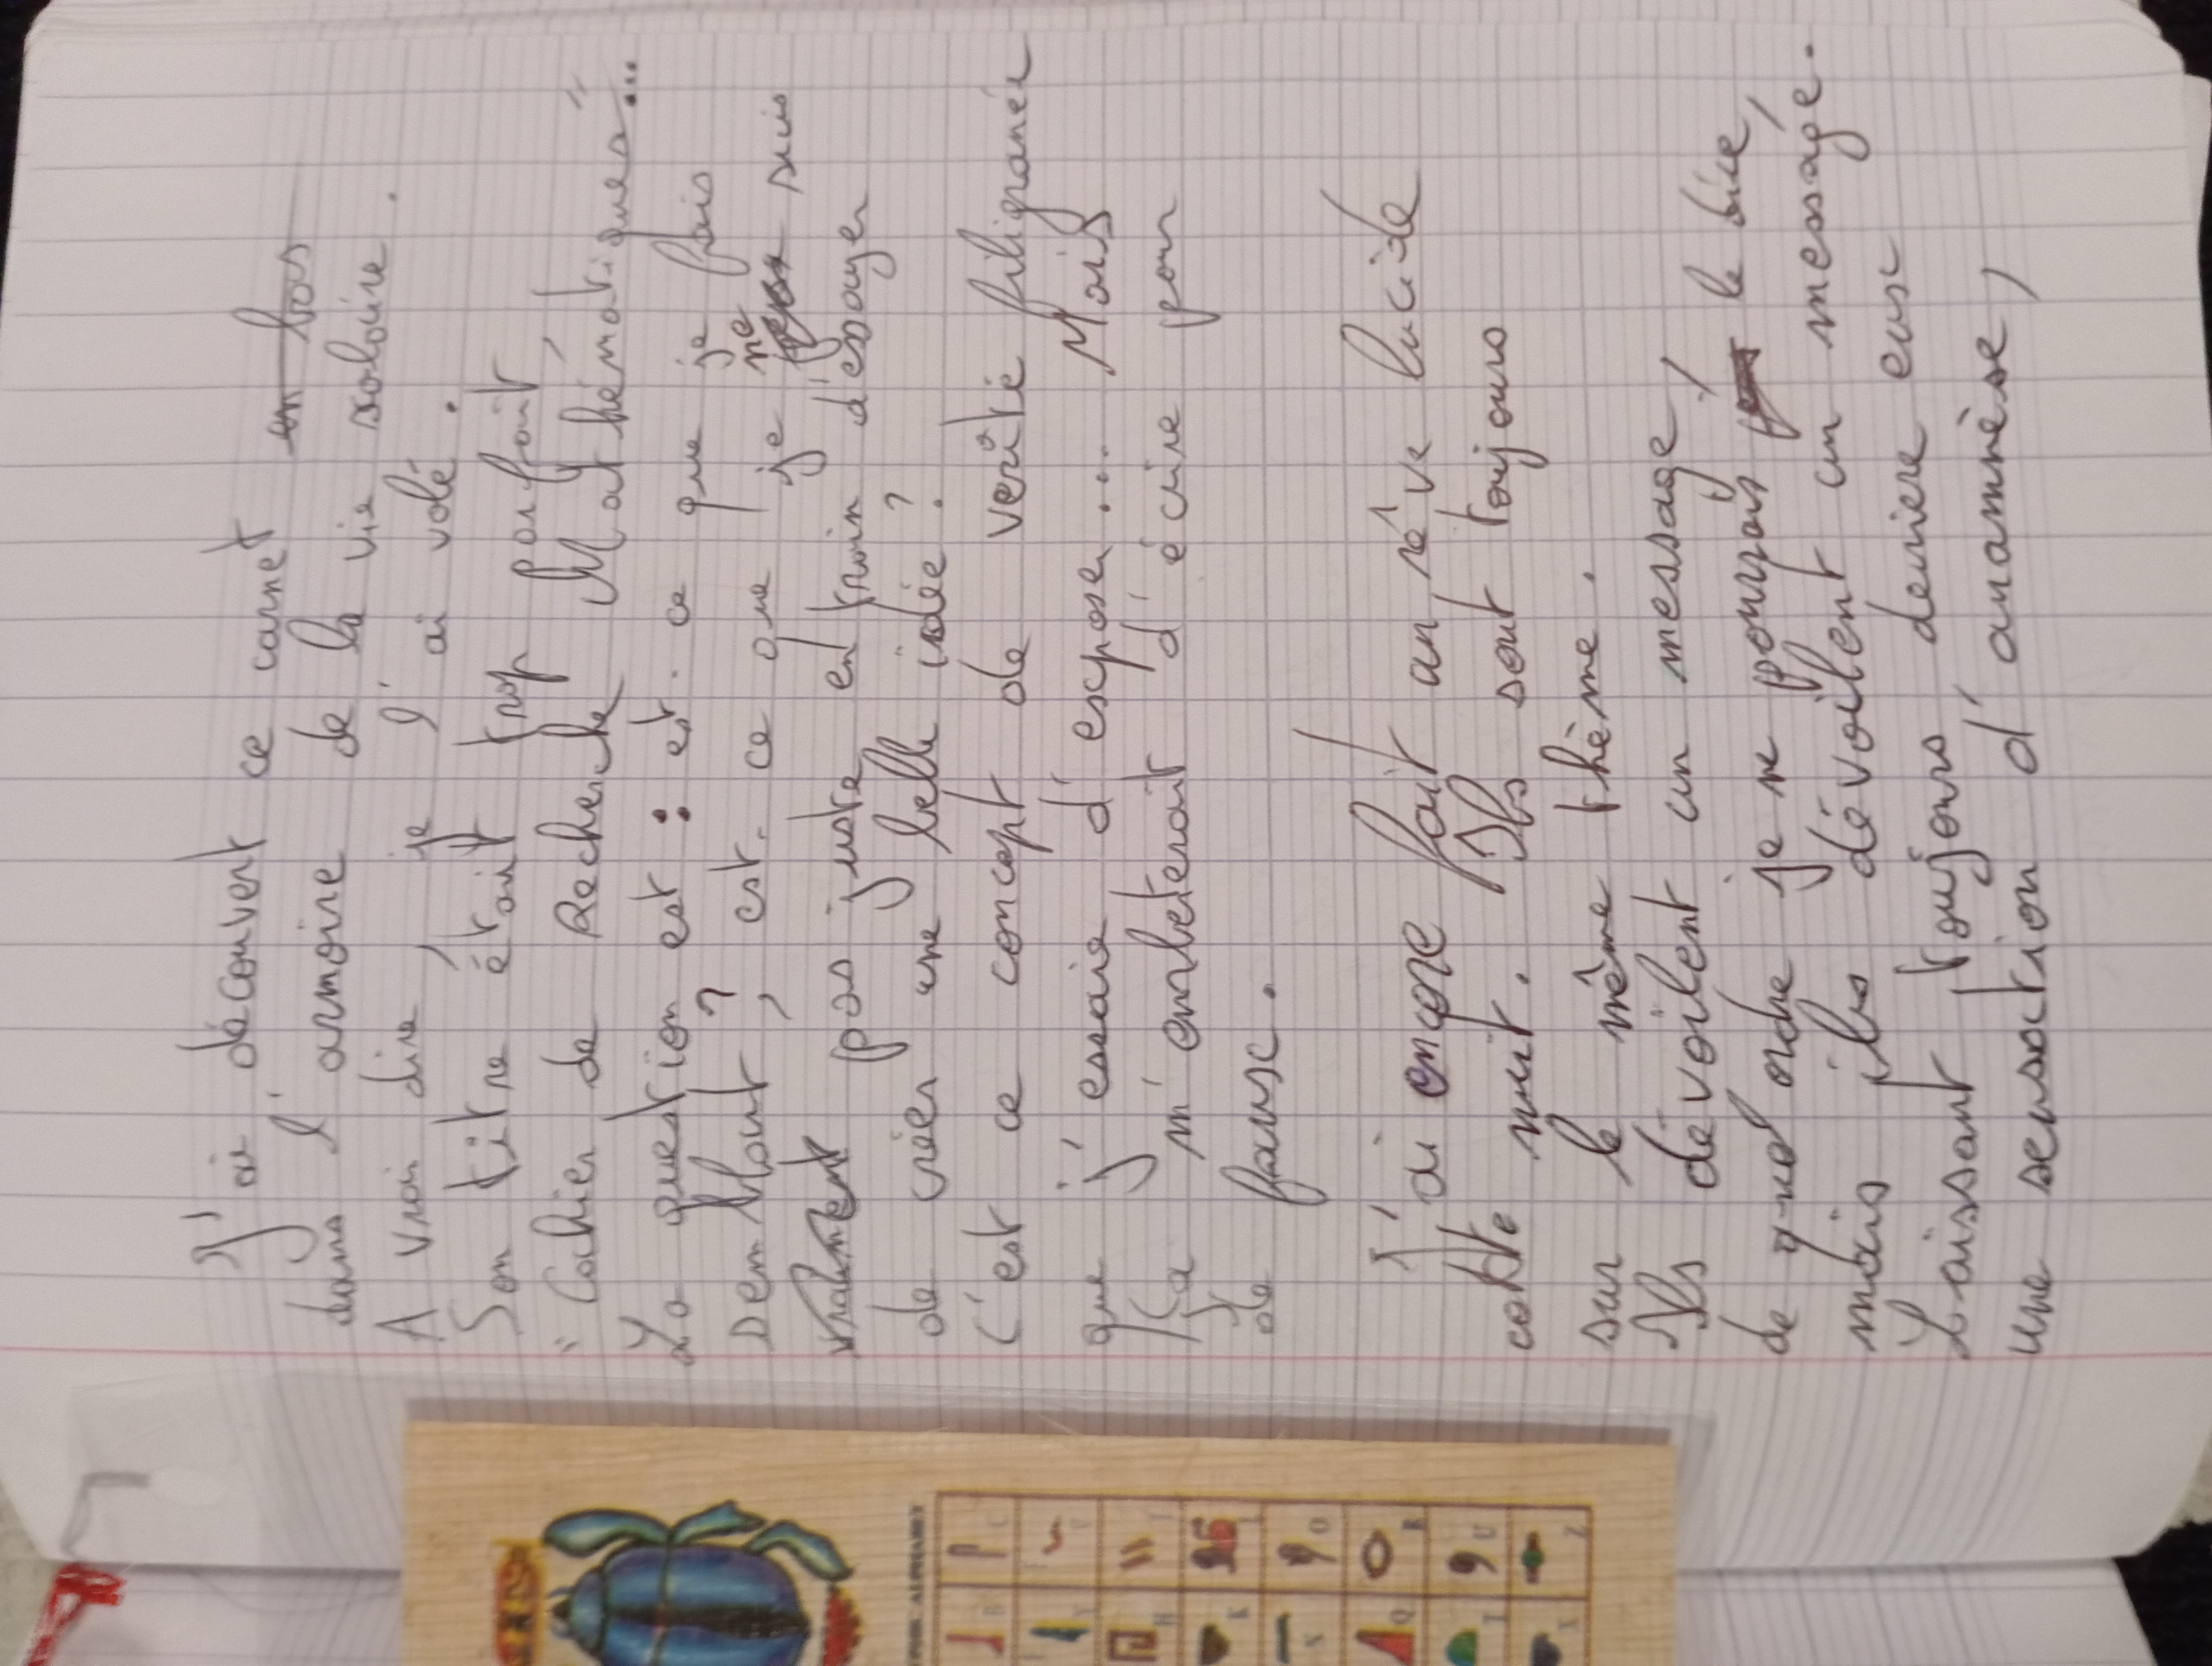 J'ai découvert ce carnet en bas
dans l'armoire de la vie scolaire.
A vrai dire, je l'ai volé.
Son titre était trop parfait,
"Cahier de Recherche Mathématiques"...
La question est : est-ce que je fais
semblant ?, est-ce que je ne suis
vraiment pas juste en train d'essayer
de créer une belle idée ?
C'est ce concept de verité filigranée
que j'essaie d'exposer... Mais
ça m'embeterait d'écrire pour
de faux.
J'ai encore fait un rêve lucide
cette nuit. Ils sont toujours
sur le même thème.
Ils dévoilent un message,
de quel ordre je ne pourrais pas le dire,
mais ils dévoilent un message.
Laissant toujours derriere eux
une sensation d'anamnèse,
ALPHABET
B C
V
H I
K L
N O
Q R
T U
X Z